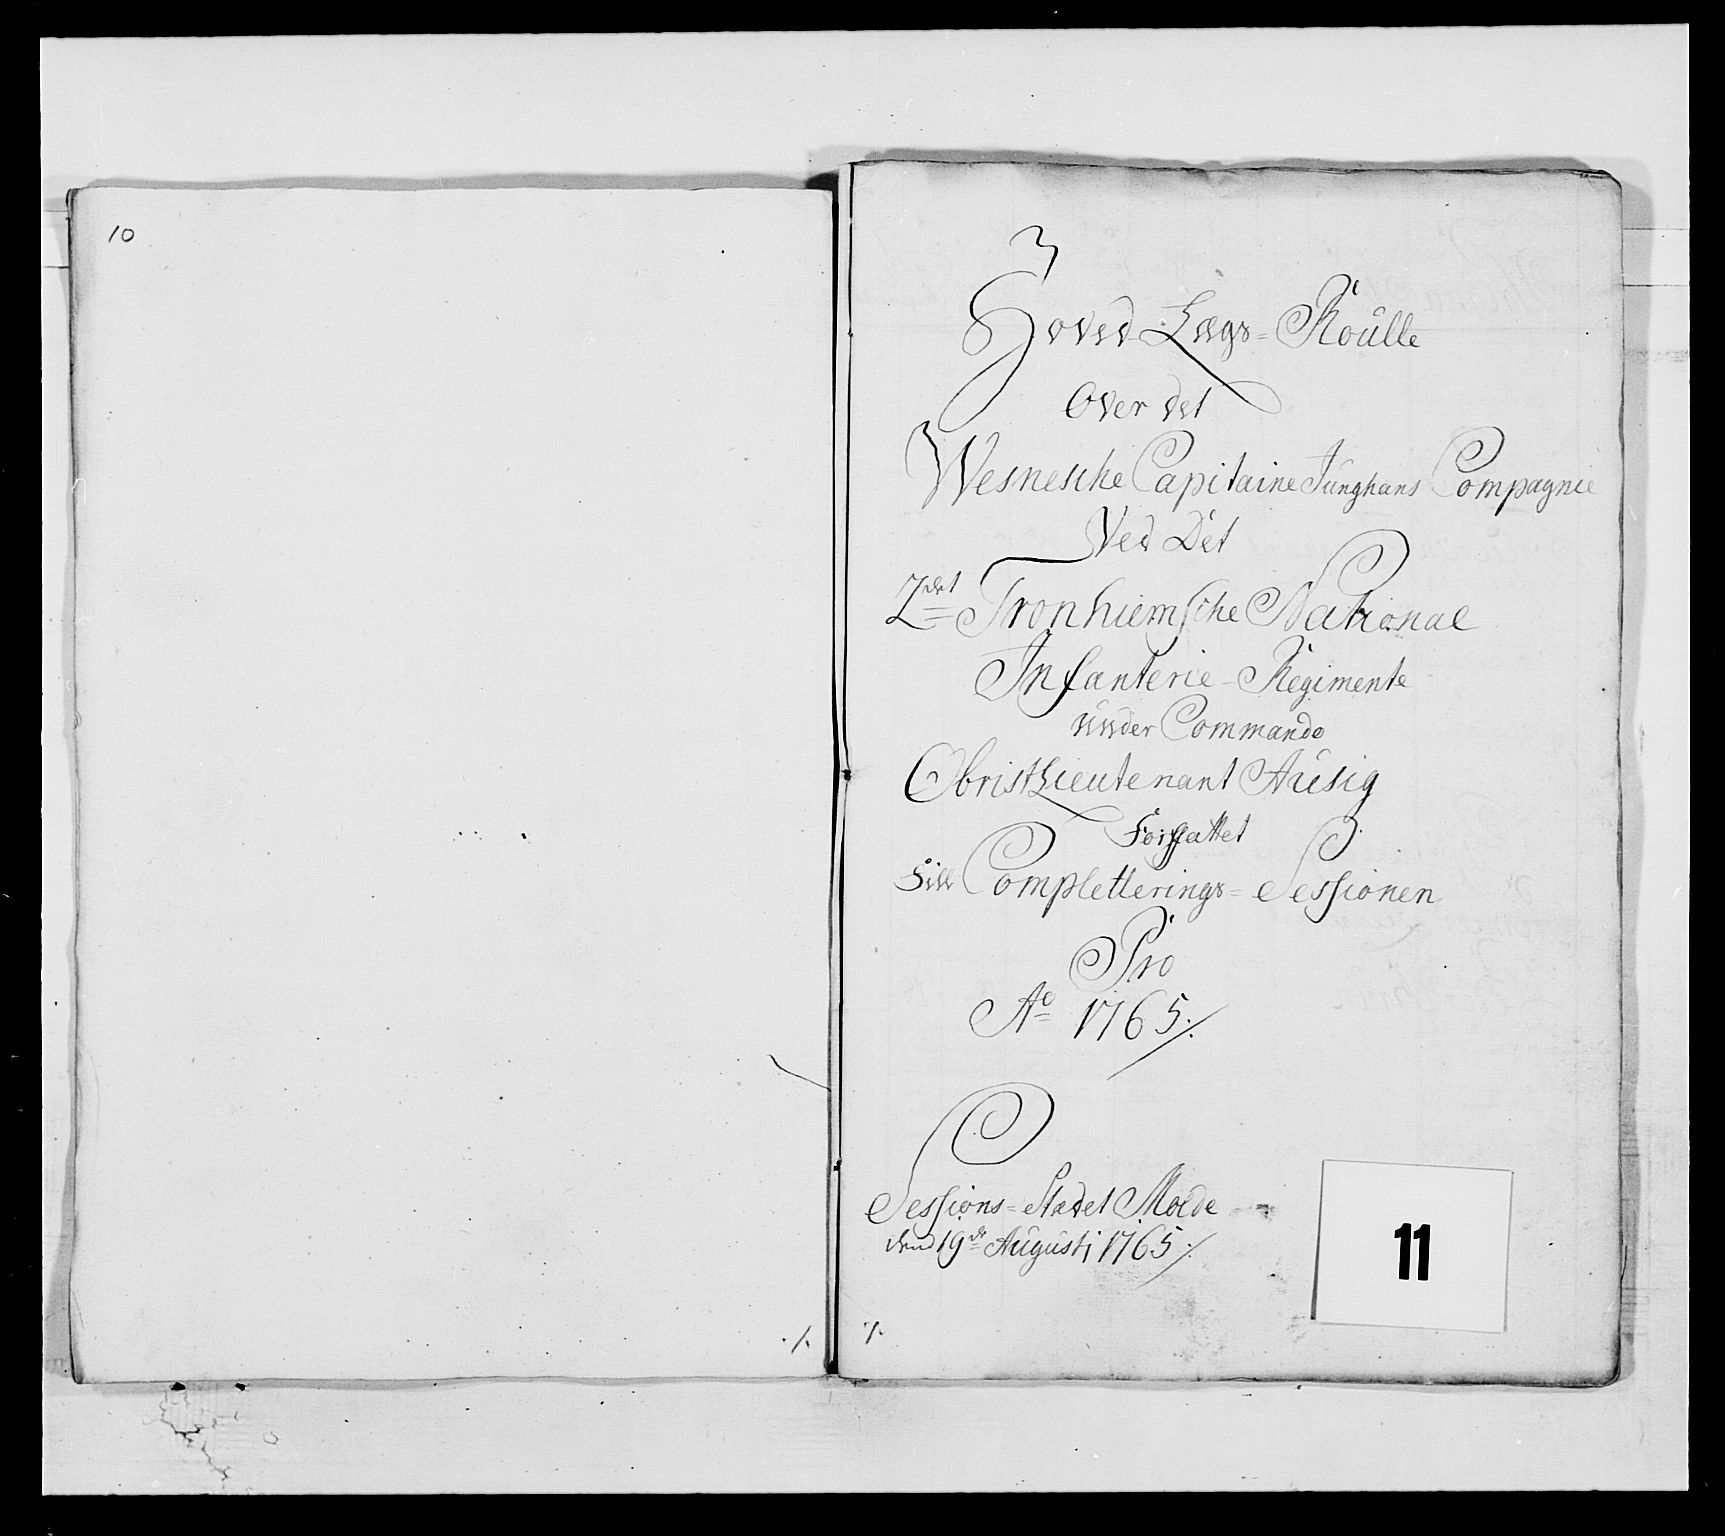 10
Hoved-Lægs=Roulle
Over det
Wesnesche Capitaine Junghans Compagnie
Ved Det
2det Tronhiemsche National
Infanterie-Regimente
under Commando
ObristLieutenant Ausig
Forfattet
Till Completterings=Sessionen
Pro
Ao 1765./.
Sessions=Stædet Molde
dend 19de Augusti 1765./.
11